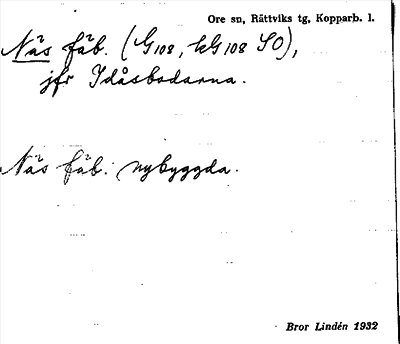 Ore sn, Rättviks tg, Kopparb. l.
Näs fäb. (G108, kG108 SO),
jfr Idåsbodarna.
Näs fäb. nybyggda.
Bror Lindén 1932